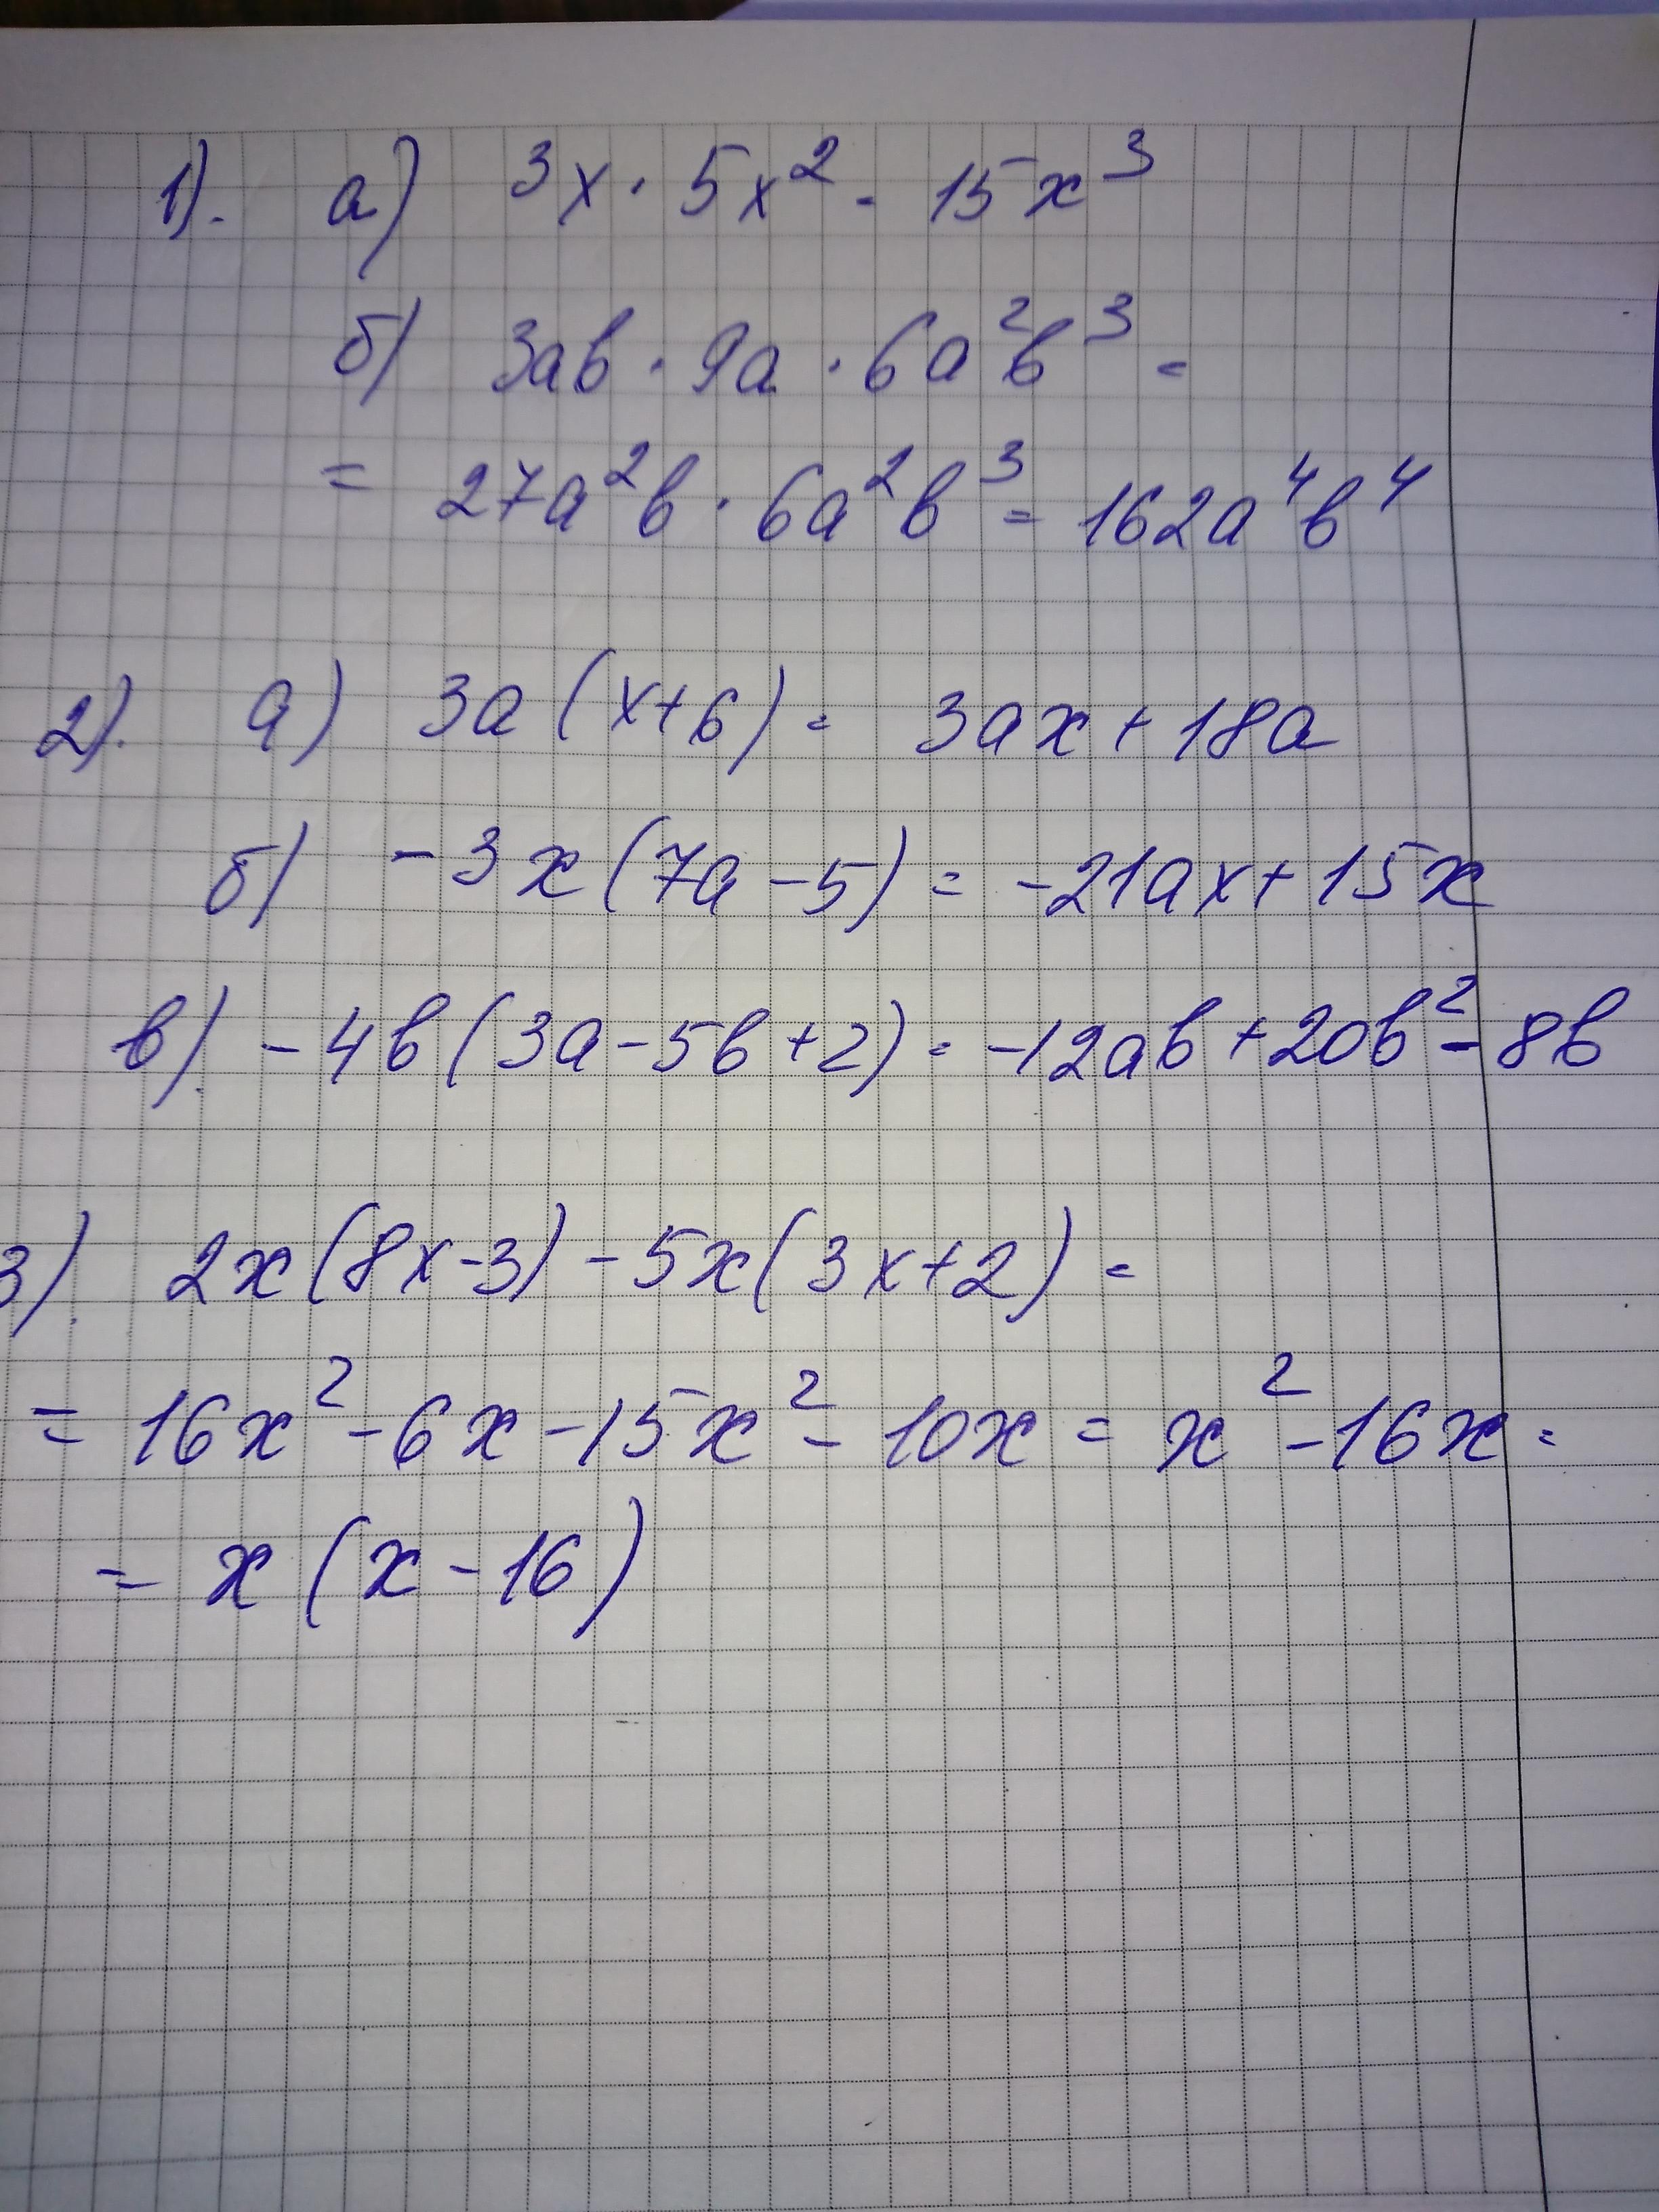 1). а) 3x · 5x² = 15x³
б) 3ab · 9a · 6a²b³ =
= 27a²b · 6a²b³ = 162a⁴b⁴
2). а) 3a (x+6) = 3ax + 18a
б) -3x (7a - 5) = -21ax + 15x
в). -4b (3a - 5b + 2) = -12ab + 20b² - 8b
3). 2x (8x - 3) - 5x (3x + 2) =
= 16x² - 6x - 15x² - 10x = x² - 16x =
= x (x - 16)